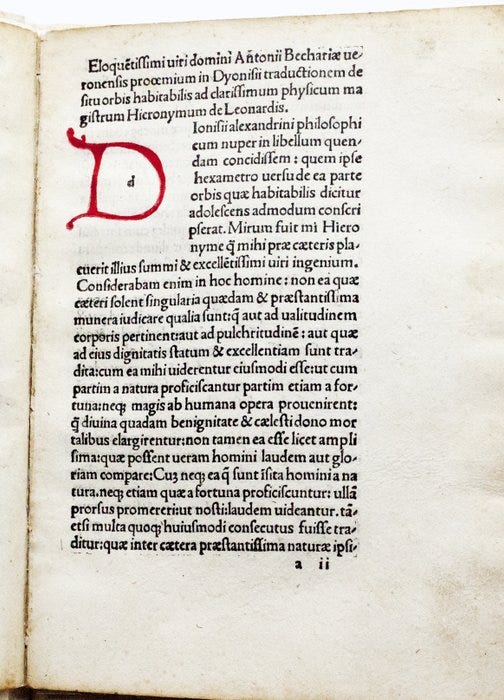 Eloquẽtissimi uiri domini Añtonii Bechariæ ue-
ronensis proœmium in Dyonisii traductionem de
situ orbis habitabilis ad clarissimum physicum ma
gistrum Hieronymum de Leonardis.
D
d
Ionisii alexandrini philosophi
cum nuper in libellum quen-
dam concidissem : quem ipse
hexametro uersu de ea parte
orbis quæ habitabilis dicitur
adolescens admodum conscri
pserat. Mirum fuit mi Hiero
nyme q̃ mihi præ cæteris pla-
cuerit illius summi & excellẽtissimi uiri ingenium.
Considerabam enim in hoc homine : non ea quæ
cæteri solent singularia quædam & præstantissima
munera iudicare qualia sunt: q̃ aut ad ualitudinem
corporis pertinent: aut ad pulchritudinẽ : aut quæ
ad eius dignitatis statum & excellentiam sunt tra-
dita: cum ea mihi uiderentur eiusmodi esse: ut cum
partim a natura proficiscantur partim etiam a for-
tuna: neqꝫ magis ab humana opera prouenirent:
q̃ diuina quadam benignitate & cælesti dono mor
talibus elargirentur: non tamen ea esse licet ampli
sima: quæ possent ueram homini laudem aut glo-
riam compare: Cuꝫ neqꝫ ea q̃ sunt ĩsita homini a na
tura. neqꝫ etiam quæ a fortuna proficiscuntur: ullã
prorsus promereri: ut nosti: laudem uideantur. tã-
etsi multa quoqꝫ huiusmodi consecutus fuisse tra-
ditur: quæ inter cætera præstantissima naturæ ipsi-
a ii